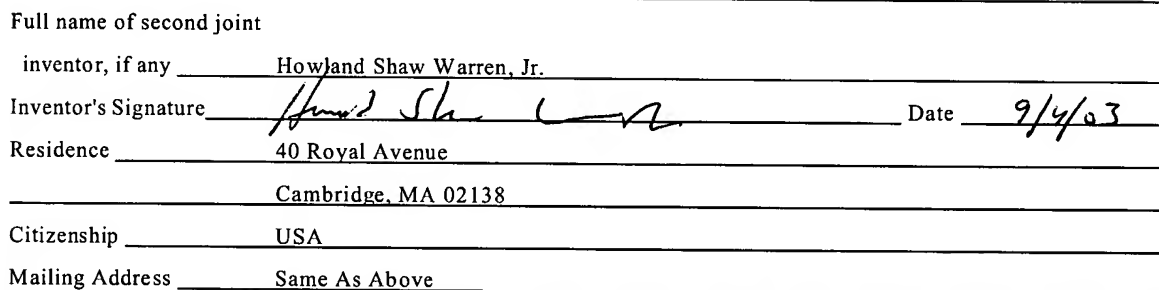 Full name of second joint
inventor, if any Howland Shaw Warren, Jr.
Inventor's Signature Date 9/4/03
Residence 40 Royal Avenue
Cambridge, MA 02138
Citizenship USA
Mailing Address Same As Above